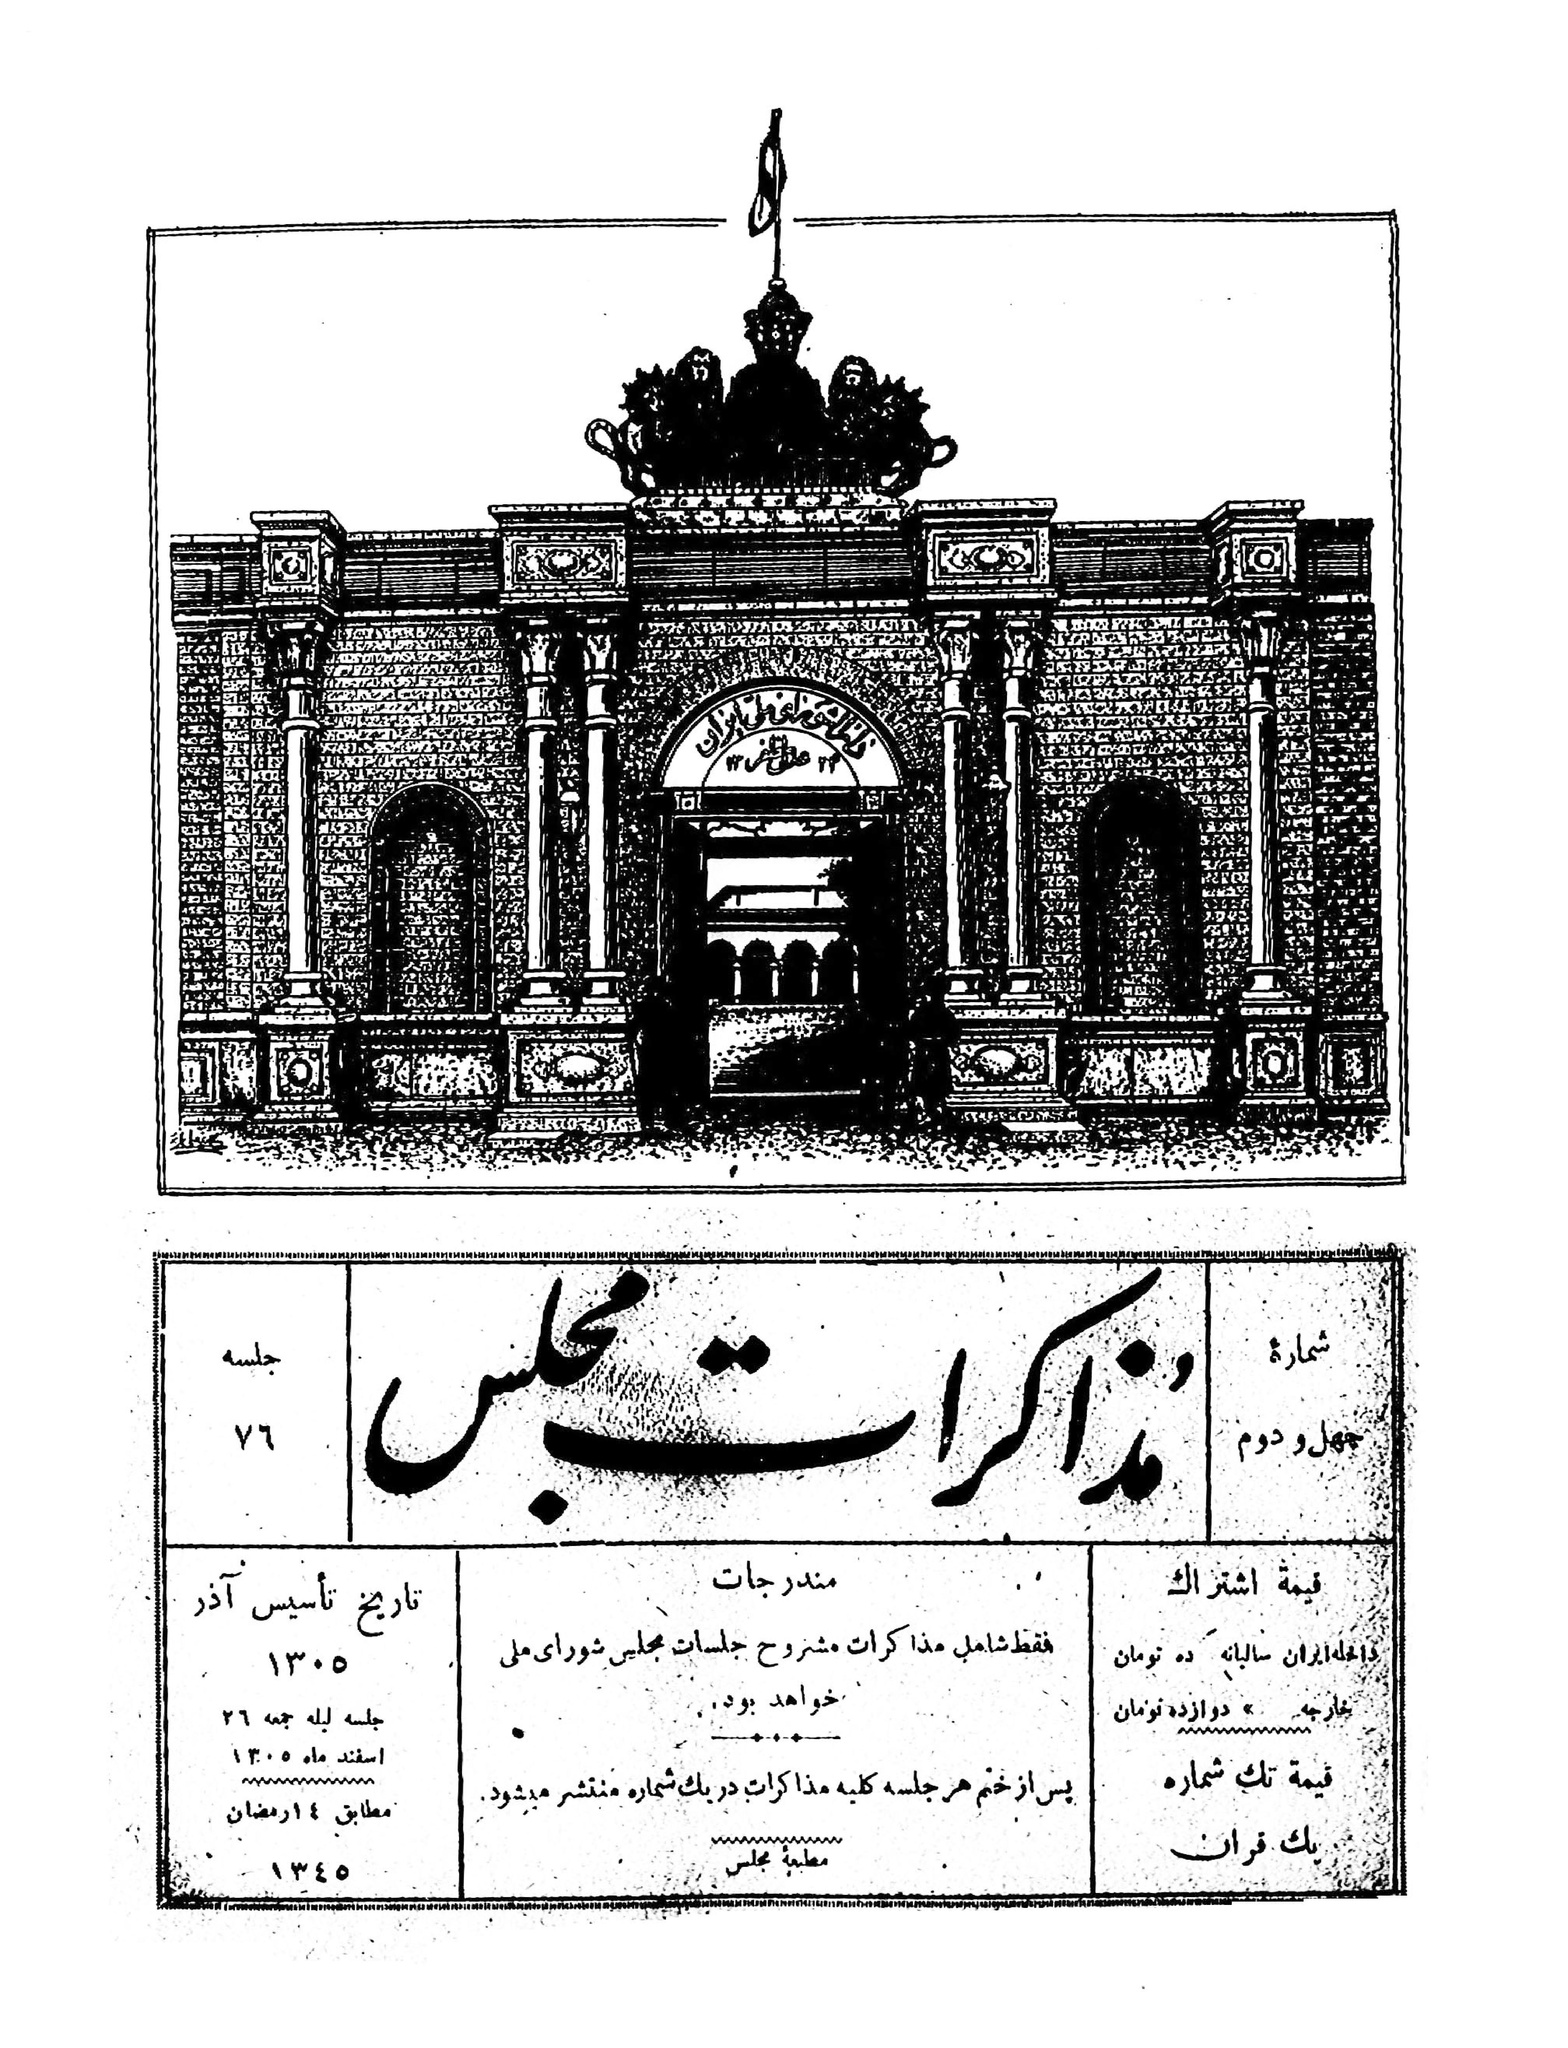 دارالشورای ملی ایران
عدل مظفر
شماره
چهل و دوم
مذاکرات مجلس
جلسه
۷٦
قیمة اشتراك
داخله ایران سالیانه ده تومان
خارجه » دوازده تومان
قیمة تك شماره
یك قران
مندرجات
فقط شامل مذاکرات مشروح جلسات مجلس شورای ملی
خواهد بود.
پس از ختم هر جلسه کلیه مذاکرات در یك شماره منتشر میشود.
مطبعهٔ مجلس
تاریخ تأسیس آذر
۱۳۰٥
جلسه لیله جمعه ۲٦
اسفند ماه ۱۳۰٥
مطابق ۱٤ رمضان
۱۳٤٥